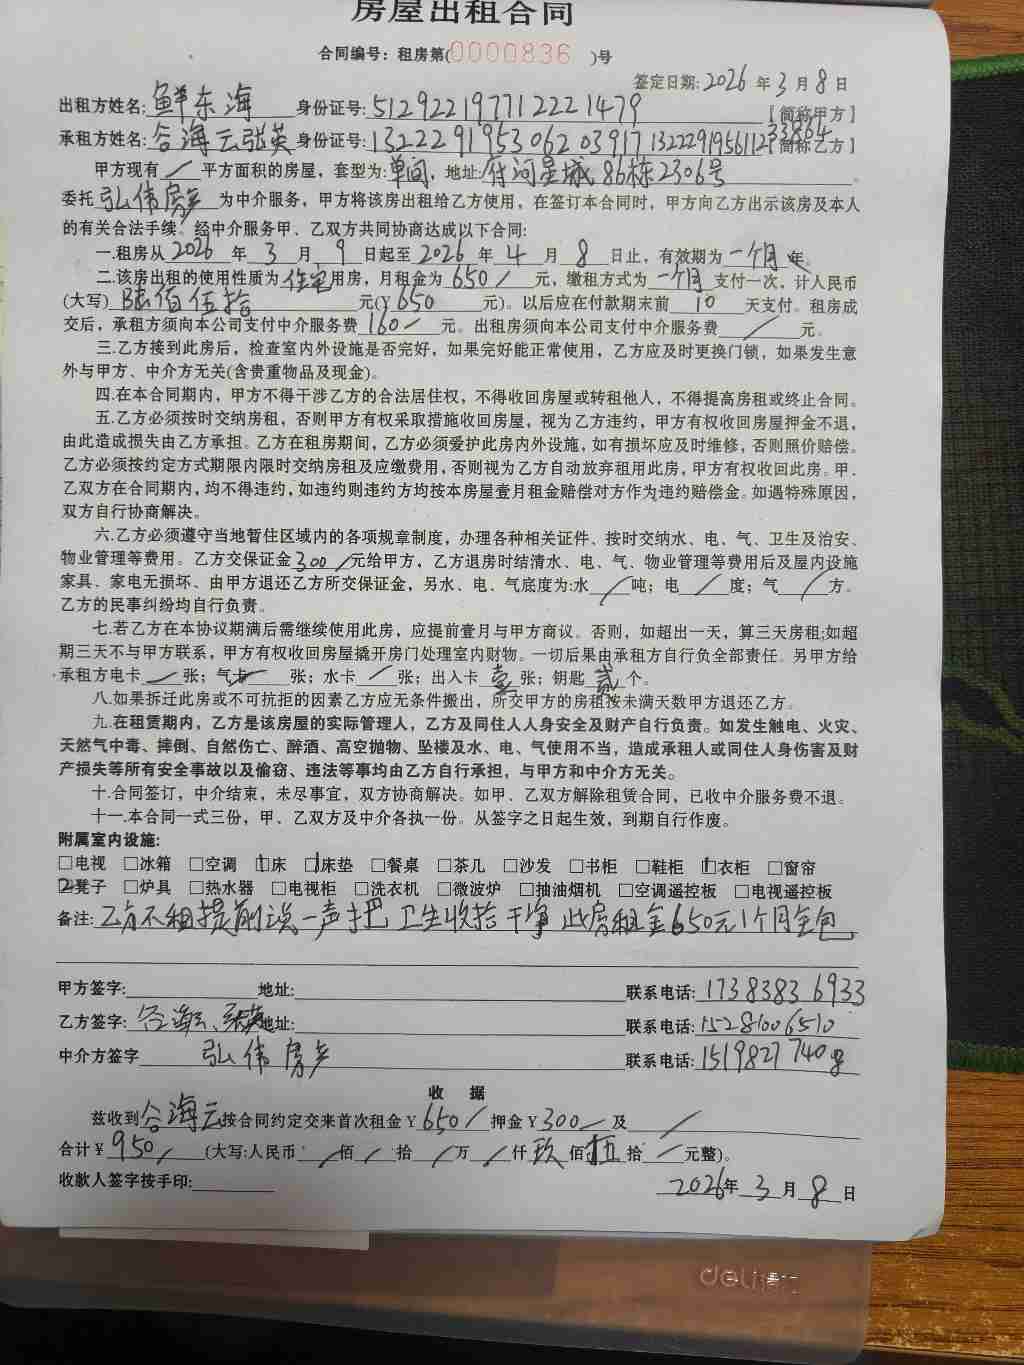 房屋出租合同
合同编号：租房第(0000836 )号
签定日期:2026年3月8日
出租方姓名:鲜东海 身份证号:512922197712221479 【简称甲方】
承租方姓名:谷海云张英 身份证号:132229195306203917 13222919561123864 【简称乙方】
甲方现有/平方面积的房屋，套型为:单间，地址:府河星城86栋2306号
委托弘伟房产为中介服务，甲方将该房出租给乙方使用，在签订本合同时，甲方向乙方出示该房及本人
的有关合法手续。经中介服务甲、乙双方共同协商达成以下合同:
一.租房从2026年3月9日起至2026年4月8日止，有效期为一个月年。
二.该房出租的使用性质为住宅用房，月租金为650/元，缴租方式为一个月支付一次，计人民币
(大写)陆佰伍拾元(¥650元)。以后应在付款期末前10天支付。租房成
交后，承租方须向本公司支付中介服务费160/元。出租房须向本公司支付中介服务费/元。
三.乙方接到此房后，检查室内外设施是否完好，如果完好能正常使用，乙方应及时更换门锁，如果发生意
外与甲方、中介方无关(含贵重物品及现金)。
四.在本合同期内，甲方不得干涉乙方的合法居住权，不得收回房屋或转租他人，不得提高房租或终止合同。
五.乙方必须按时交纳房租，否则甲方有权采取措施收回房屋，视为乙方违约，甲方有权收回房屋押金不退，
由此造成损失由乙方承担。乙方在租房期间，乙方必须爱护此房内外设施，如有损坏应及时维修，否则照价赔偿。
乙方必须按约定方式期限内限时交纳房租及应缴费用，否则视为乙方自动放弃租用此房，甲方有权收回此房。甲.
乙双方在合同期内，均不得违约，如违约则违约方均按本房屋壹月租金赔偿对方作为违约赔偿金。如遇特殊原因，
双方自行协商解决。
六.乙方必须遵守当地暂住区域内的各项规章制度，办理各种相关证件、按时交纳水、电、气、卫生及治安、
物业管理等费用。乙方交保证金300/元给甲方，乙方退房时结清水、电、气、物业管理等费用后及屋内设施
家具、家电无损坏、由甲方退还乙方所交保证金，另水、电、气底度为:水/吨；电/度；气/方。
乙方的民事纠纷均自行负责。
七.若乙方在本协议期满后需继续使用此房，应提前壹月与甲方商议。否则，如超出一天，算三天房租;如超
期三天不与甲方联系，甲方有权收回房屋撬开房门处理室内财物。一切后果由承租方自行负全部责任。另甲方给
承租方电卡/张；气卡/张；水卡/张；出入卡壹张；钥匙贰个。
八.如果拆迁此房或不可抗拒的因素乙方应无条件搬出，所交甲方的房租按未满天数甲方退还乙方。
九.在租赁期内，乙方是该房屋的实际管理人，乙方及同住人人身安全及财产自行负责。如发生触电、火灾、
天然气中毒、摔倒、自然伤亡、醉酒、高空抛物、坠楼及水、电、气使用不当，造成承租人或同住人身伤害及财
产损失等所有安全事故以及偷窃、违法等事均由乙方自行承担，与甲方和中介方无关。
十.合同签订，中介结束，未尽事宜，双方协商解决。如甲、乙双方解除租赁合同，已收中介服务费不退。
十一.本合同一式三份，甲、乙双方及中介各执一份。从签字之日起生效，到期自行作废。
附属室内设施:
□电视 □冰箱 □空调 1床 1床垫 □餐桌 □茶几 □沙发 □书柜 □鞋柜 1衣柜 □窗帘
2凳子 □炉具 □热水器 □电视柜 □洗衣机 □微波炉 □抽油烟机 □空调遥控板 □电视遥控板
备注:乙方不租提前说一声把卫生收拾干净 此房租金650元1个月全包
甲方签字: 地址: 联系电话:17383836933
乙方签字:谷海云、张英 地址: 联系电话:15281006510
中介方签字 弘伟房产 联系电话:15198277408
收 据
兹收到谷海云按合同约定交来首次租金¥650/押金¥300/及/
合计¥950/(大写:人民币/佰/拾/万/仟玖佰伍拾/元整)。
收款人签字按手印: 2026年3月8日
deli